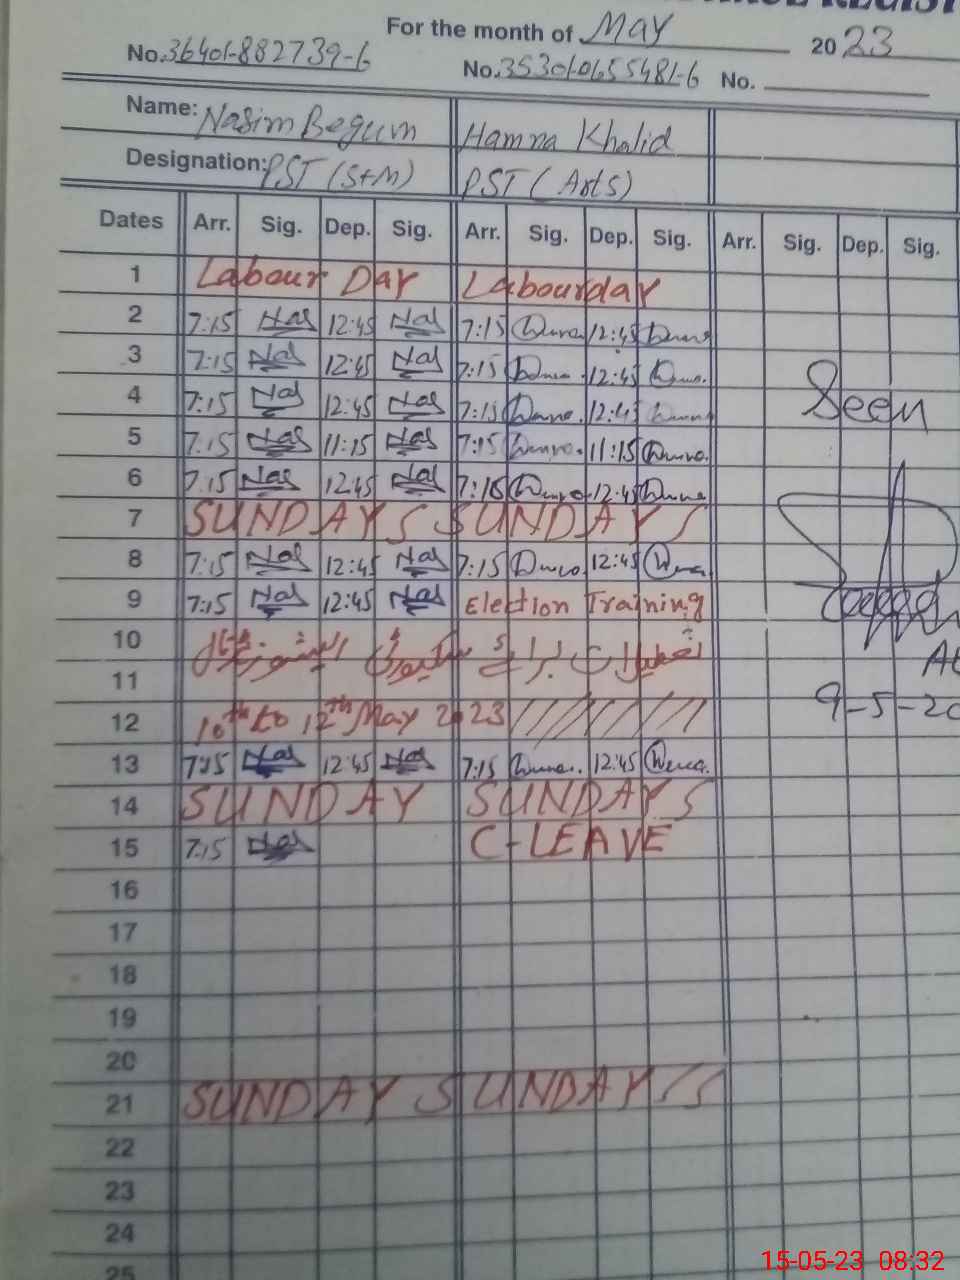 For the month of May 2023
No. 36401-882739-6 No. 35301-0655481-6 No.
Name: Nasim Begum Hamna Khalid
Designation: PST (S+M) PST (Arts)
Dates Arr. Sig. Dep. Sig. Arr. Sig. Dep. Sig. Arr. Sig. Dep. Sig.
1 Labour Day Labourday
2 7:15 Nas 12:45 Nas 7:15 12:45
3 7:15 Nas 12:45 Nas 7:15 12:45
4 7:15 Nas 12:45 Nas 7:15 12:45 Seen
5 7:15 Nas 11:15 Nas 7:15 11:15
6 7:15 Nas 12:45 Nas 7:15 12:45
7 SUNDAY S SUNDAY S
8 7:15 Nas 12:45 Nas 7:15 12:45
9 7:15 Nas 12:45 Nas Election Training
10 تعطیلات برائے سیکیورٹی
11
12 10th to 12th May 2023
9-5-20
13 7:15 Nas 12:45 Nas 7:15 12:45
14 SUNDAY SUNDAY S
15 7:15 Nas C-LEAVE
16
17
18
19
20
21 SUNDAY SUNDAY S
22
23
24
25
15-05-23 08:32